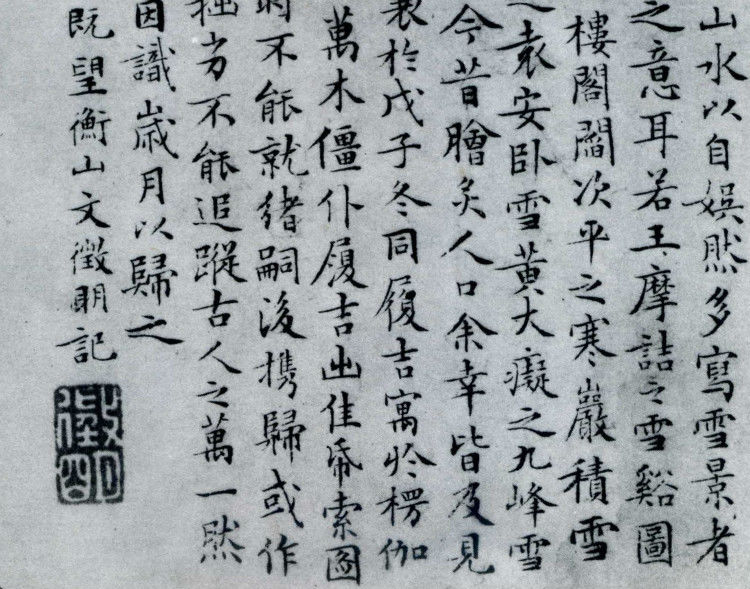 山水以自娱然多寫雪景者
之意耳若王摩詰之雪谿圖
樓閣閻次平之寒巖積雪
袁安卧雪黄大癡之九峰雪
今昔膾炙人口余幸皆及見
於戊子冬同履吉寓於楞伽
萬木僵仆履吉出佳紙索圖
不能就緒嗣後携歸或作
拙劣不能追蹤古人之萬一然
因識歲月以歸之
既望衡山文徵明記
徵明